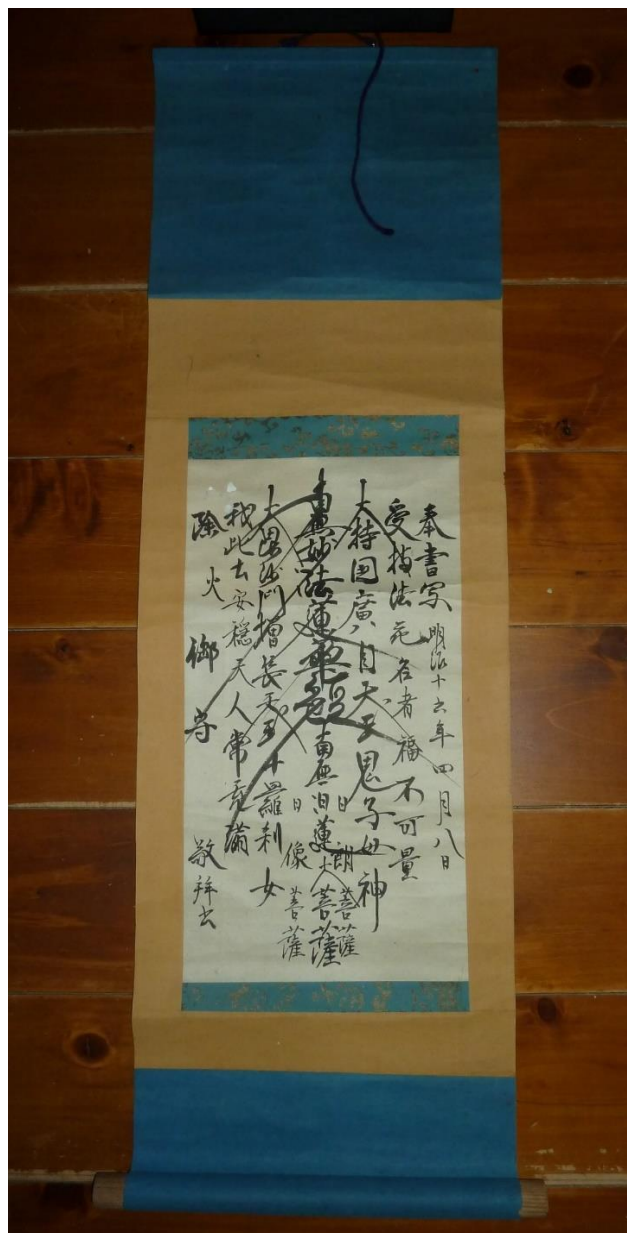 奉書写 明治十六年四月八日
受持法花名者福不可量
大持国廣目天王鬼子母神
日朗菩薩
南無妙法蓮華經 南無日蓮大菩薩
日像菩薩
大毘沙門増長天王十羅刹女
我此土安穏天人常充満
除火御守 敬拝書